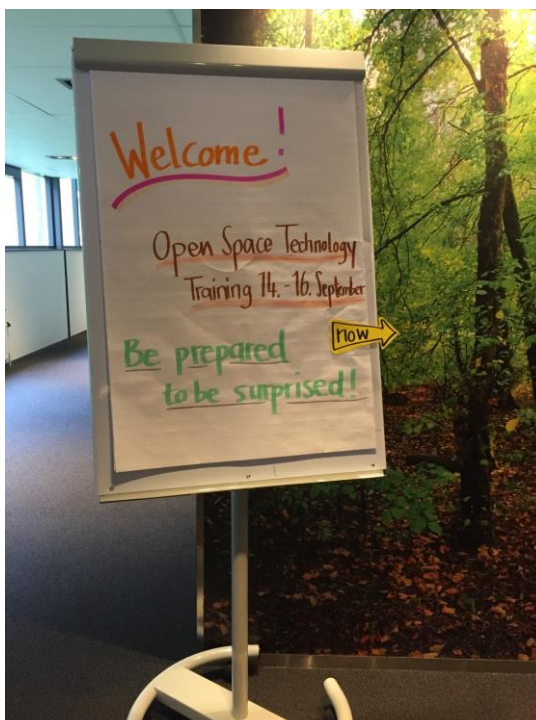 Welcome!
Open Space Technology
Training 14. - 16. September
now
Be prepared
to be surprised!